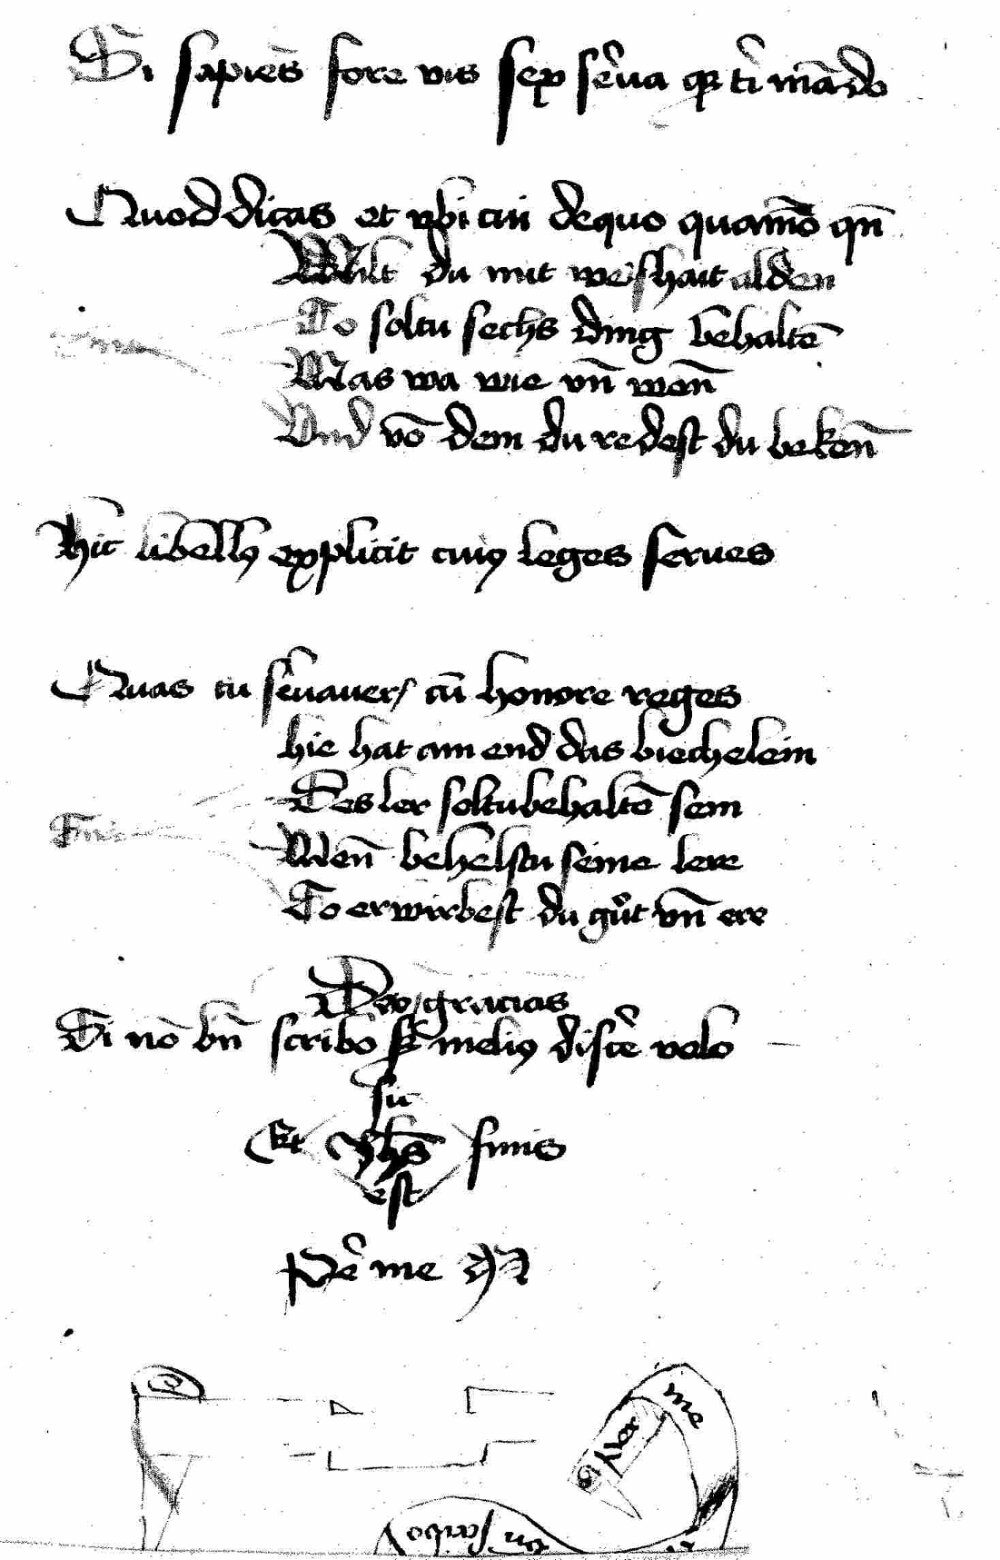 Si sapiēs fore vis sex sẽua q̃ t̃i mãdo
Quod dicas et vbi cui de quo quaō̄ qñ
Wilt du mit weishait alden
So soltu sechs ding behaltē
Was wa wie vñ weñ
Vnd võ dem du redest du bekeñ
Hic libellꝰ explicit cuiꝰ leges serues
Quas tu sẽuauerˢ cũ honore reges
hie hat ain end das biechelein
Des ler soltu behaltē sein
Wen̄ behelstu seine lere
So erwirbest du gůt vñ ere
Deo gracias
Si nō bñ scribo sꝫ meliꝰ discẽ volo
sit
Et Jhs̄ finis
est
Pẽ me
Per me